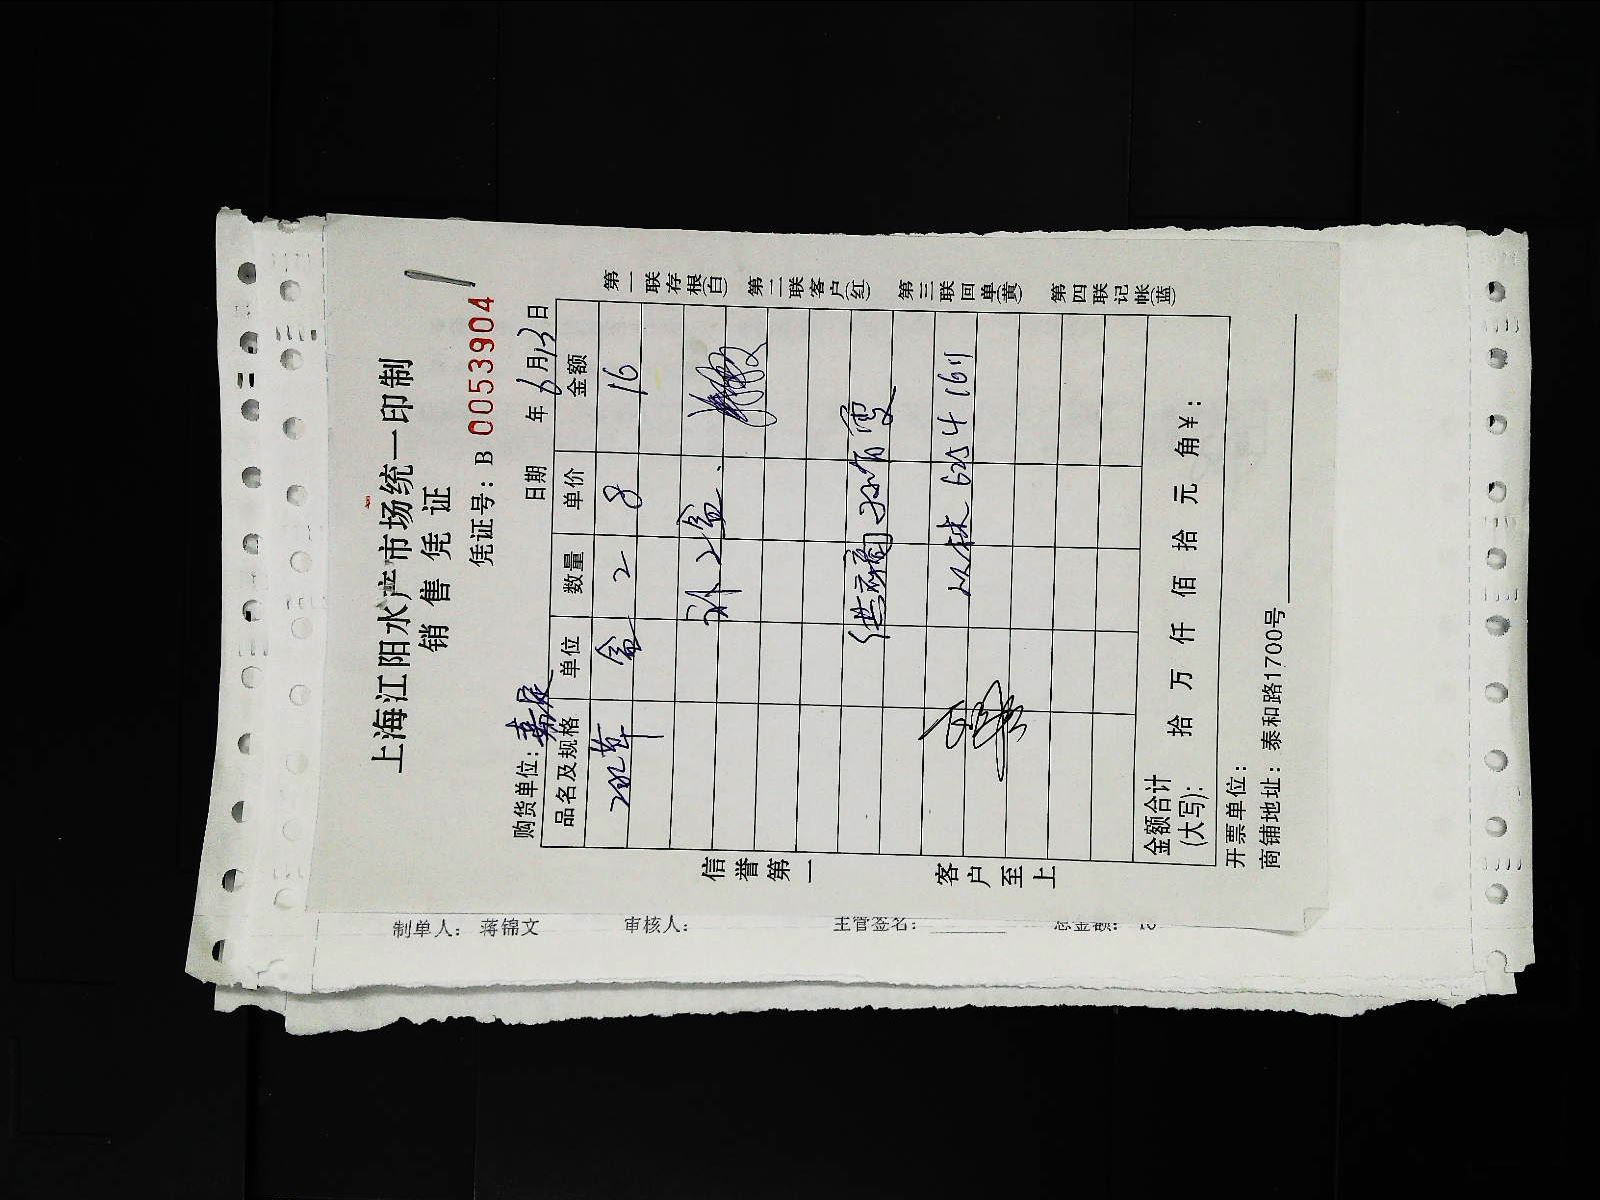 上海江阳水产市场统一印制
销售凭证
凭证号：B 0053904
购货单位：嘉辰 日期 年6月13日
品名及规格 单位 数量 单价 金额
盒 2 8 16
补2盒.
金额合计(大写)： 拾 万 仟 佰 拾 元 角￥：
开票单位：
商铺地址：泰和路1700号
信誉第一 客户至上
第一联存根(白) 第二联客户(红) 第三联回单(黄) 第四联记帐(蓝)
制单人： 蒋锦文 审核人： 主管签名： 总金额： 16